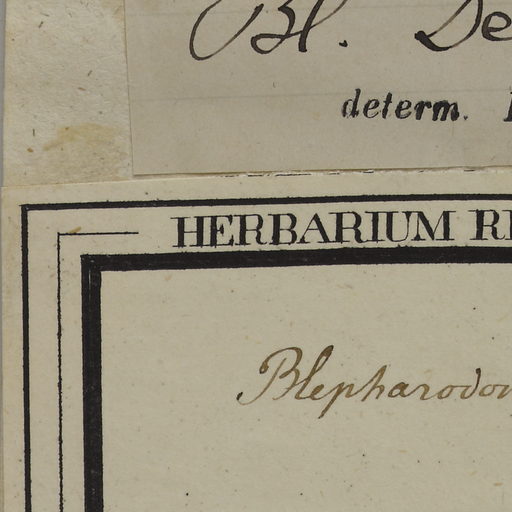 Bl. De
determ.
HERBARIUM RE
Blepharodon